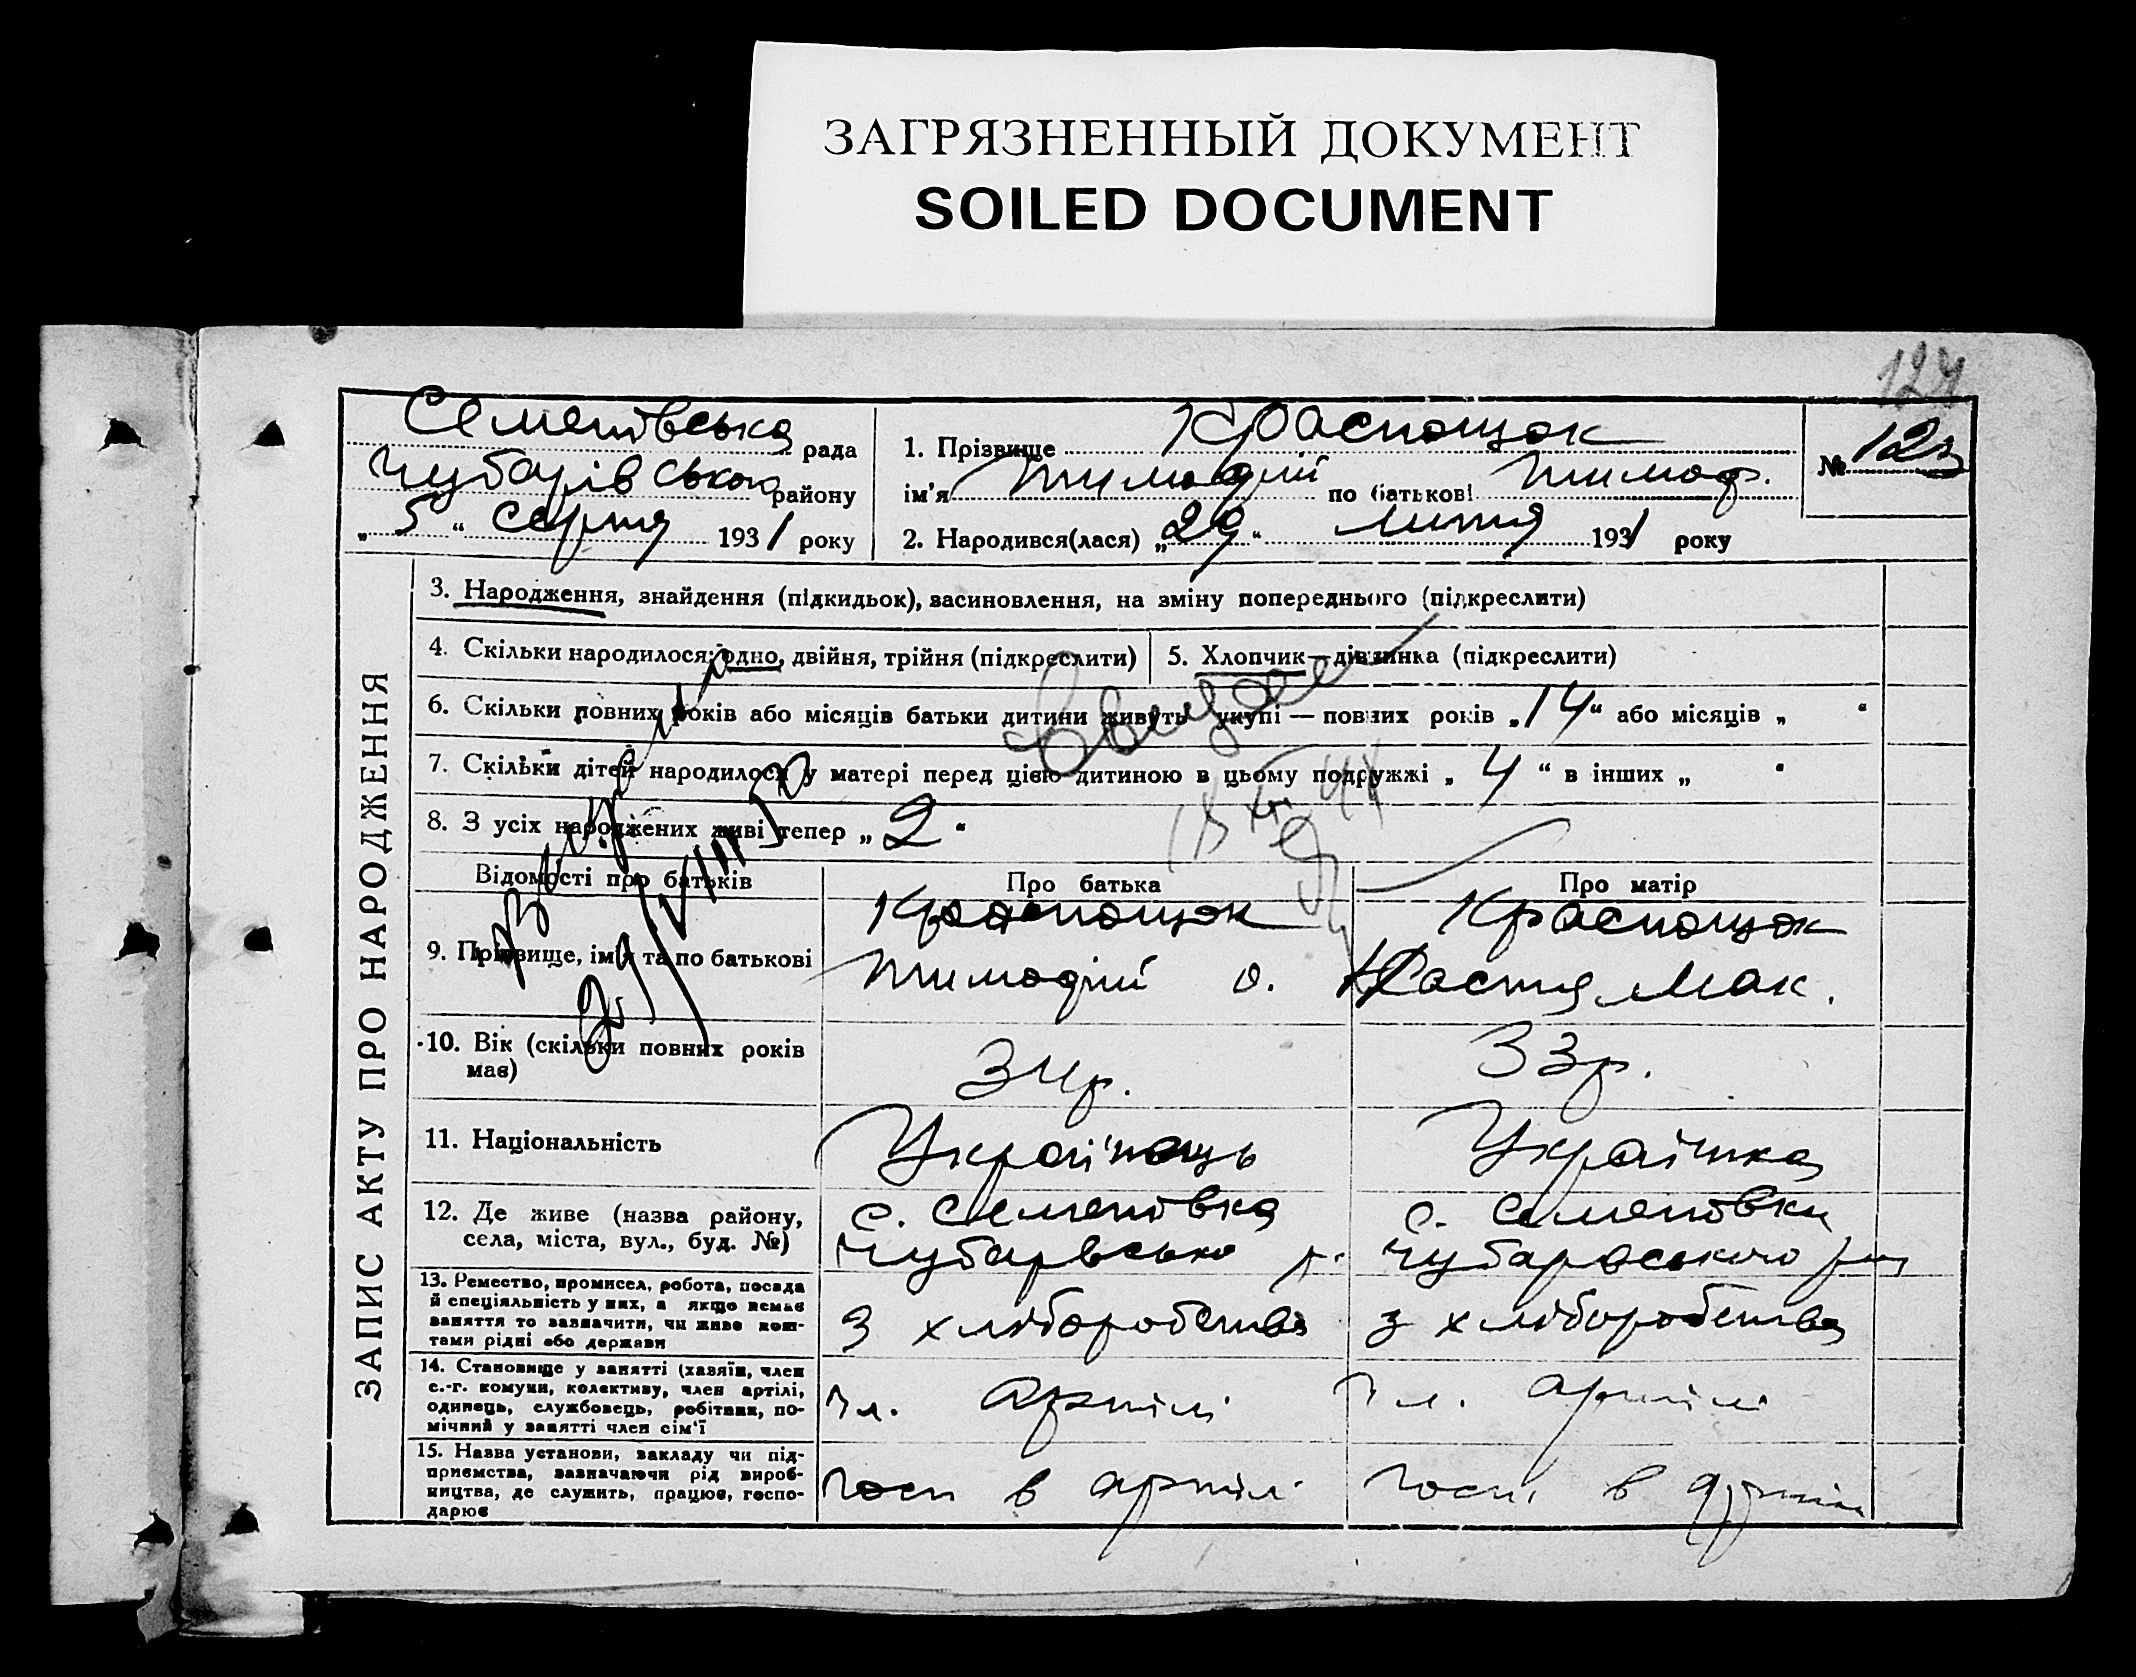 ЗАГРЯЗНЕННЫЙ ДОКУМЕНТ
SOILED DOCUMENT
124
Семенівська рада
Чубарівського району
„ 5 “ серпня 1931 року
1. Прізвище Краснощок
ім'я Тимофій по батькові Тимоф.
2. Народився(лася) „ 29 “ липня 1931 року
№ 123
ЗАПИС АКТУ ПРО НАРОДЖЕННЯ
3. Народження, знайдення (підкидьок), засиновлення, на зміну попереднього (підкреслити)
4. Скільки народилося: одно, двійня, трійня (підкреслити)
5. Хлопчик—дівчинка (підкреслити)
6. Скільки повних років або місяців батьки дитини живуть укупі — повних років „ 14 “ або місяців „ “
7. Скільки дітей народилося у матері перед цією дитиною в цьому подружжі „ 4 “ в інших „ “
8. З усіх народжених живі тепер „ 2 “
Відомості про батьків
Про батька
Про матір
9. Прізвище, ім'я та по батькові
Краснощок
Тимофій О.
Краснощок
Настя Мак.
10. Вік (скільки повних років має)
34 р.
33 р.
11. Національність
Українець
Українка
12. Де живе (назва району,
села, міста, вул., буд. №)
с. Семенівка
Чубарвсько р.
с. Семенівки
Чубаровського р-ну
13. Ремество, промисел, робота, посада
й спеціяльність у них, а якщо немає
заняття то зазначити, чи живе кош-
тами рідні або держави
З хліборобства
з хліборобства
14. Становище у занятті (хазяїн, член
с.-г. комуни, колективу, член артілі,
одинець, службовець, робітник, по-
мічний у занятті член сім'ї
Чл. артілі
Чл. артілі
15. Назва установи, закладу чи під-
приємства, зазначаючи рід вироб-
ництва, де служить, працює, госпо-
дарює
госп в артілі
госп. в артілі